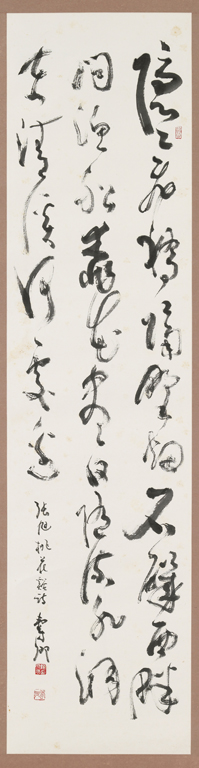 隱隱飛橋隔野烟石磯西畔
問漁船桃花盡日隨流水洞
在清溪何處邊
張旭桃花谿詩